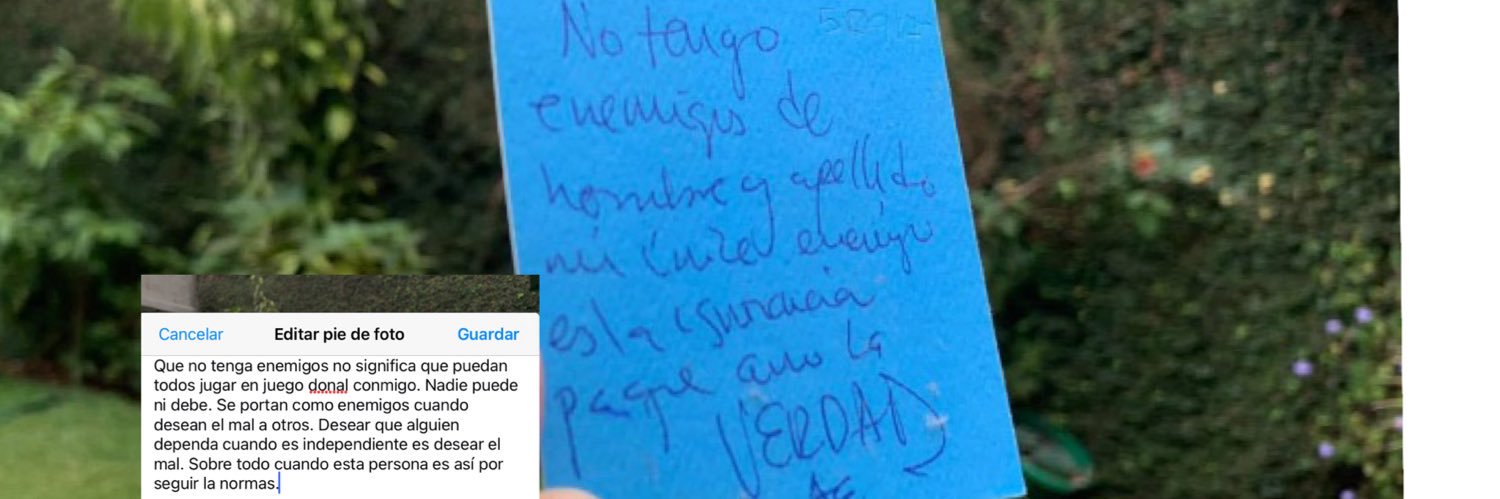 No tengo
enemigos de
nombre y apellido
mi único enemigo
es la ignorancia
porque amo la
VERDAD
Cancelar Editar pie de foto Guardar
Que no tenga enemigos no significa que puedan
todos jugar en juego donal conmigo. Nadie puede
ni debe. Se portan como enemigos cuando
desean el mal a otros. Desear que alguien
dependa cuando es independiente es desear el
mal. Sobre todo cuando esta persona es así por
seguir la normas.